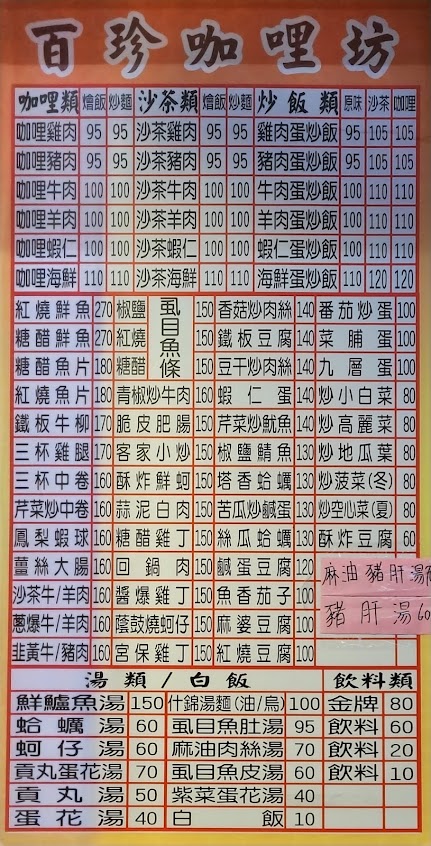 百珍咖哩坊
咖哩類 燴飯 炒麵 沙茶類 燴飯 炒麵 炒飯類 原味 沙茶 咖哩
咖哩雞肉 95 95 沙茶雞肉 95 95 雞肉蛋炒飯 95 105 105
咖哩豬肉 95 95 沙茶豬肉 95 95 豬肉蛋炒飯 95 105 105
咖哩牛肉 100 100 沙茶牛肉 100 100 牛肉蛋炒飯 100 110 110
咖哩羊肉 100 100 沙茶羊肉 100 100 羊肉蛋炒飯 100 110 110
咖哩蝦仁 100 100 沙茶蝦仁 100 100 蝦仁蛋炒飯 100 110 110
咖哩海鮮 110 110 沙茶海鮮 110 110 海鮮蛋炒飯 110 120 120
紅燒鮮魚 270 椒鹽 虱目魚條 150 香菇炒肉絲 140 番茄炒蛋 100
糖醋鮮魚 270 紅燒 150 鐵板豆腐 140 菜脯蛋 100
糖醋魚片 180 糖醋 150 豆干炒肉絲 140 九層蛋 100
紅燒魚片 180 青椒炒牛肉 160 蝦仁蛋 140 炒小白菜 80
鐵板牛柳 170 脆皮肥腸 150 芹菜炒魷魚 150 炒高麗菜 80
三杯雞腿 170 客家小炒 150 椒鹽鯖魚 130 炒地瓜葉 80
三杯中卷 160 酥炸鮮蚵 150 塔香蛤蠣 130 炒菠菜(冬) 80
芹菜炒中卷 160 蒜泥白肉 150 苦瓜炒鹹蛋 130 炒空心菜(夏) 80
鳳梨蝦球 160 糖醋雞丁 150 絲瓜蛤蠣 130 酥炸豆腐 60
薑絲大腸 160 回鍋肉 150 鹹蛋豆腐 120 麻油豬肝湯
沙茶牛/羊肉 160 醬爆雞丁 150 魚香茄子 100 豬肝湯 60
蔥爆牛/羊肉 160 蔭鼓燒蚵仔 150 麻婆豆腐 100
韭黃牛/豬肉 160 宮保雞丁 150 紅燒豆腐 100
湯類/白飯 飲料類
鮮鱸魚湯 150 什錦湯麵(油/烏) 100 金牌 80
蛤蠣湯 60 虱目魚肚湯 95 飲料 60
蚵仔湯 60 麻油肉絲湯 70 飲料 20
貢丸蛋花湯 70 虱目魚皮湯 60 飲料 10
貢丸湯 50 紫菜蛋花湯 40
蛋花湯 40 白飯 10